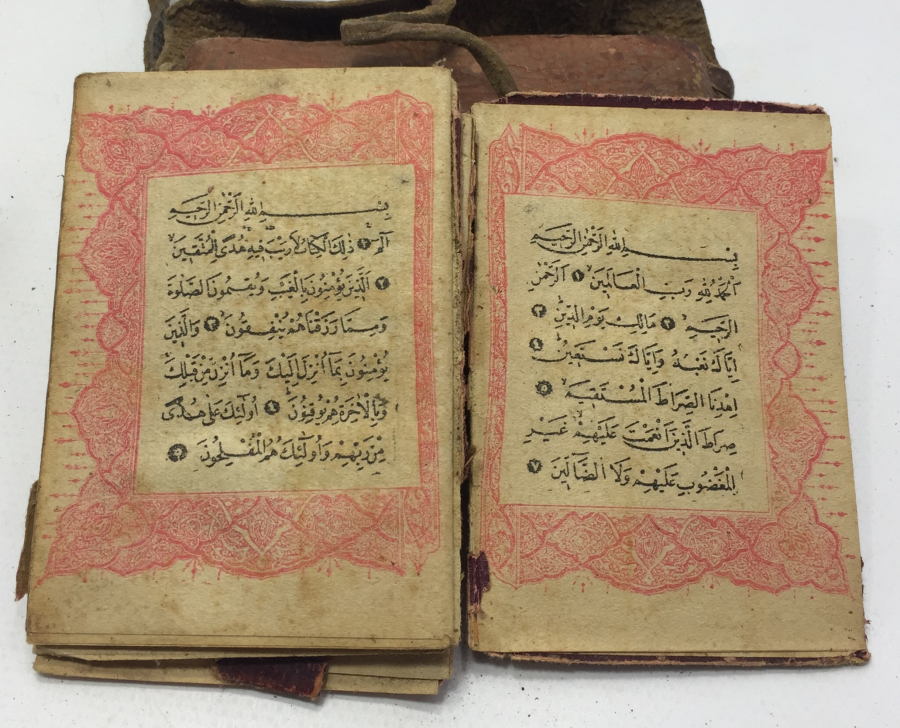 بِسْمِ اللهِ الرَّحْمٰنِ الرَّحِيمِ
اَلْحَمْدُ لِلّٰهِ رَبِّ الْعَالَمِينَ ١ اَلرَّحْمٰنِ
الرَّحِيمِ ٢ مَالِكِ يَوْمِ الدِّينِ ٣
اِيَّاكَ نَعْبُدُ وَاِيَّاكَ نَسْتَعِينُ ٤
اِهْدِنَا الصِّرَاطَ الْمُسْتَقِيمَ ٥
صِرَاطَ الَّذِينَ اَنْعَمْتَ عَلَيْهِمْ غَيْرِ
الْمَغْضُوبِ عَلَيْهِمْ وَلَا الضَّالِّينَ ٧
بِسْمِ اللهِ الرَّحْمٰنِ الرَّحِيمِ
الٓمٓ ١ ذٰلِكَ الْكِتَابُ لَا رَيْبَ فِيهِ هُدًى لِلْمُتَّقِينَ
٢ اَلَّذِينَ يُؤْمِنُونَ بِالْغَيْبِ وَيُقِيمُونَ الصَّلٰوةَ
وَمِمَّا رَزَقْنَاهُمْ يُنْفِقُونَ ٣ وَالَّذِينَ
يُؤْمِنُونَ بِمَا اُنْزِلَ اِلَيْكَ وَمَا اُنْزِلَ مِنْ قَبْلِكَ
وَبِالْاٰخِرَةِ هُمْ يُوقِنُونَ ٤ اُولٰٓئِكَ عَلٰى هُدًى
مِنْ رَبِّهِمْ وَاُولٰٓئِكَ هُمُ الْمُفْلِحُونَ ٥